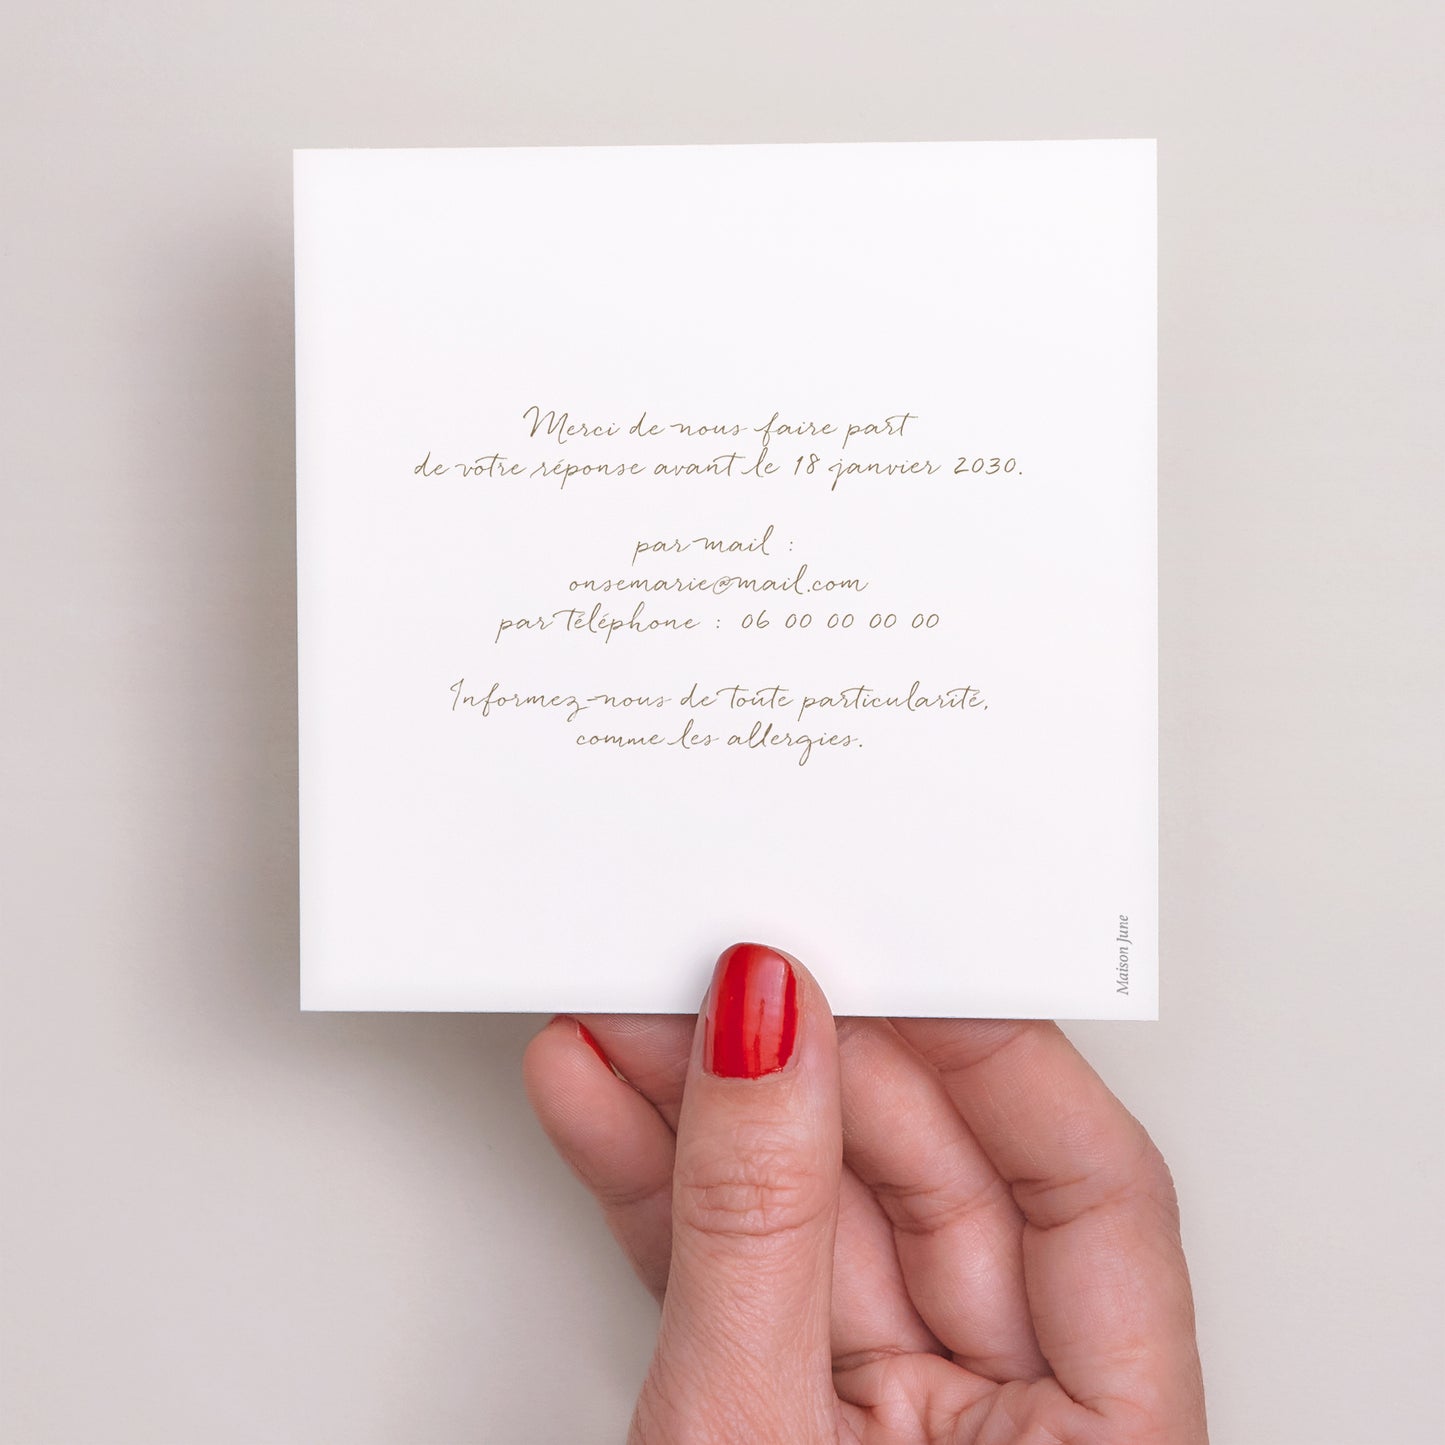 Merci de nous faire part
de votre réponse avant le 18 janvier 2030.
par mail :
onsemarie@mail.com
par téléphone : 06 00 00 00 00
Informez-nous de toute particularité,
comme les allergies.
Maison June